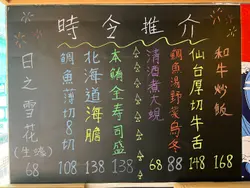 時令推介
和牛炒飯 168
仙台厚切牛舌 148
鯛魚湯野菜烏冬 88
清酒煮大蜆 68
本鮪金寿司盛 138
北海道海膽 138
鯛魚薄切8切 108
日之雪花(生蠔) 68